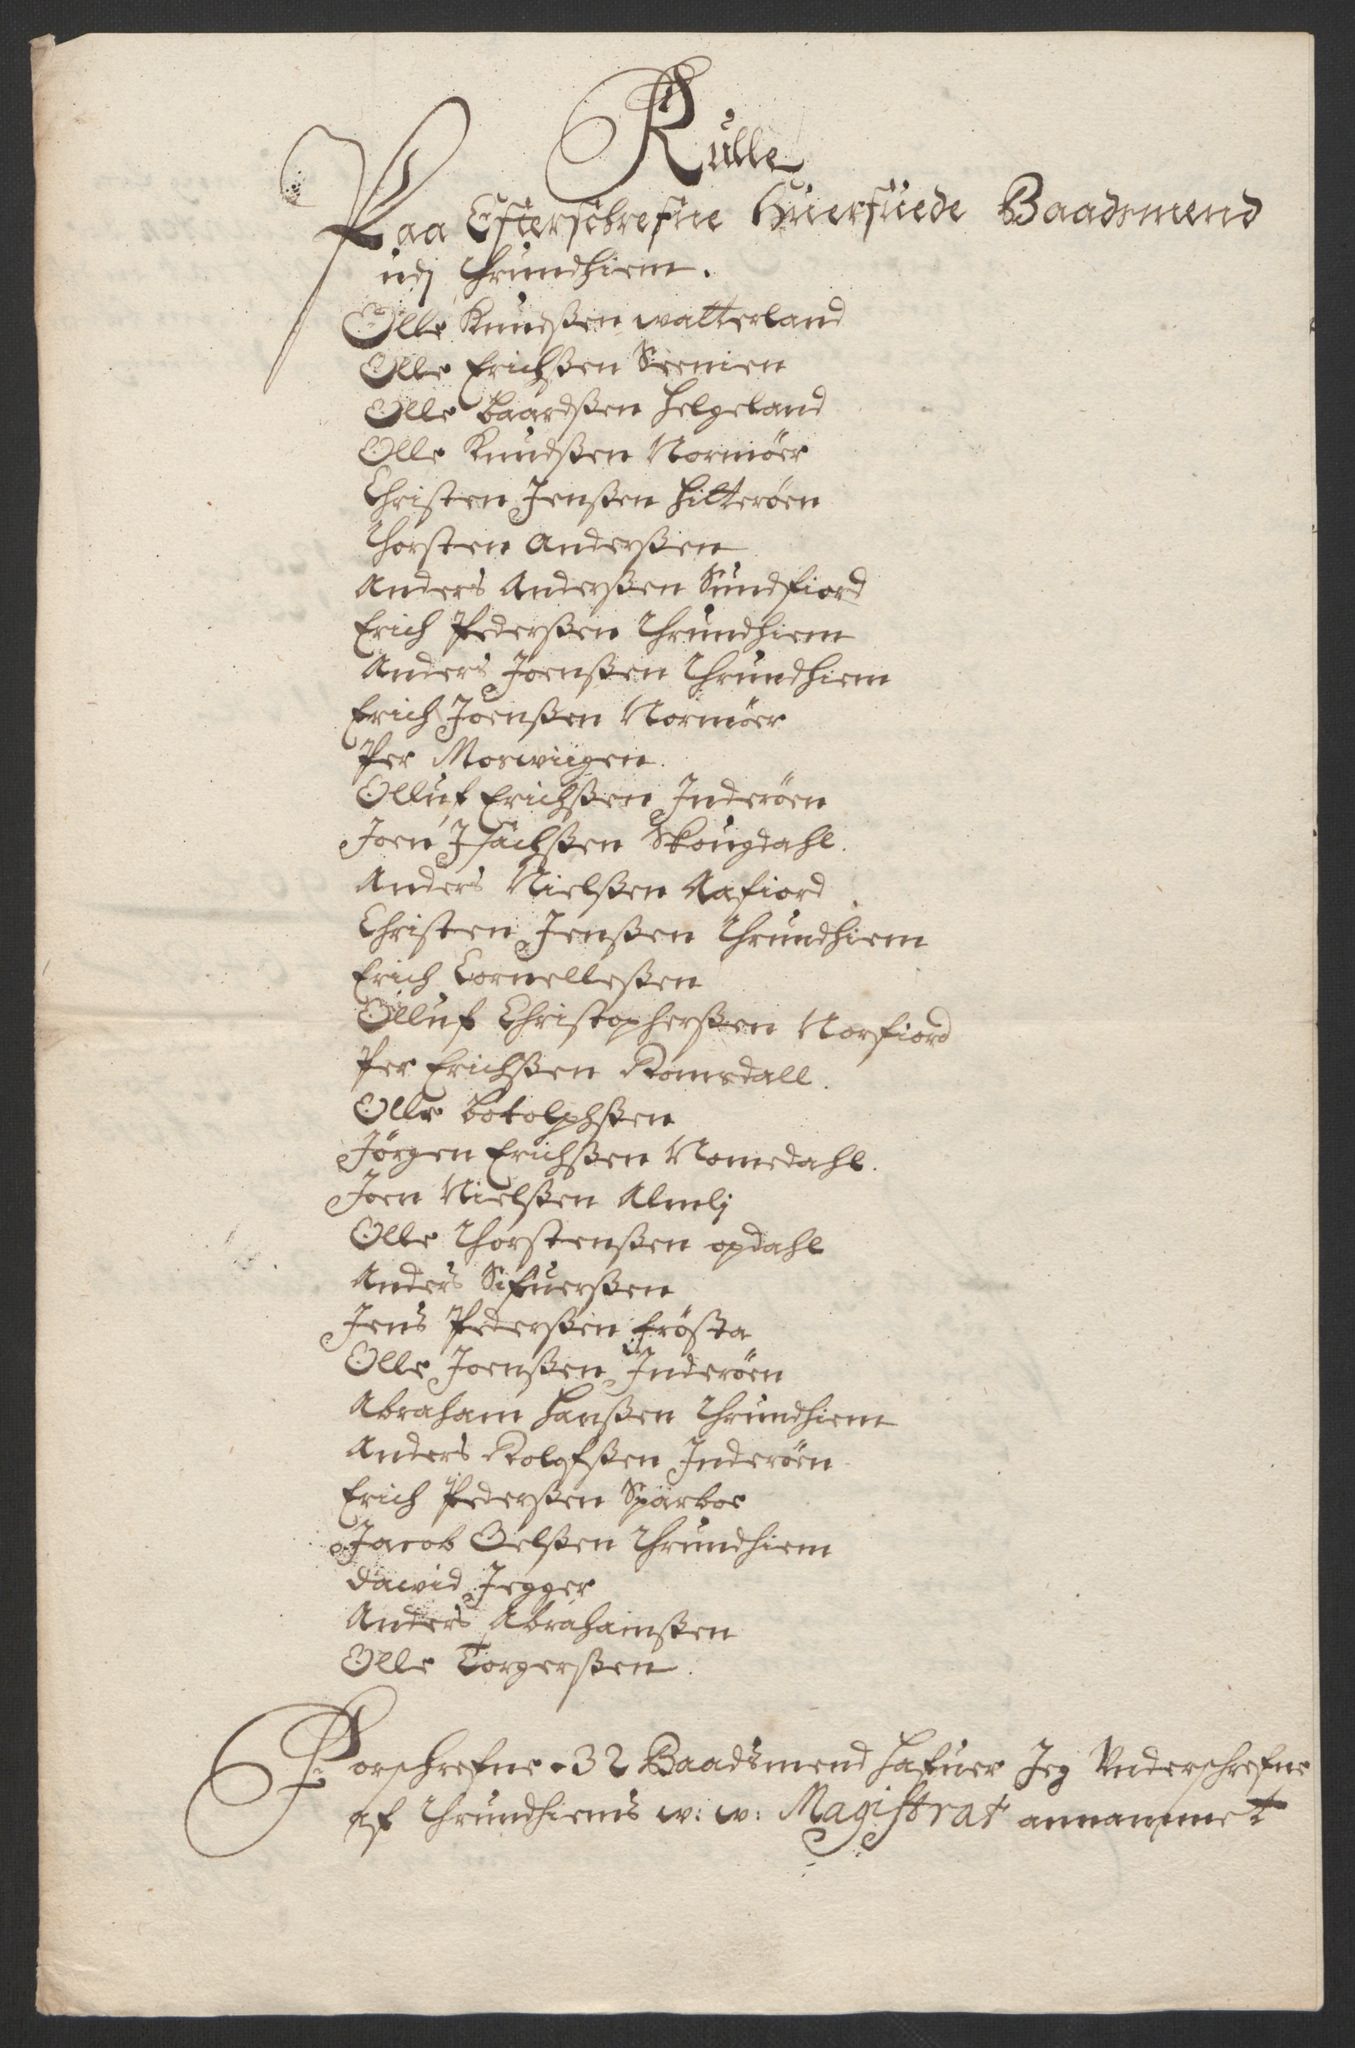 Rulle
Paa Efterschrefne Huerfuede Baadsmend
udj Thrundhiem.
Olle Knudßen watterland
Olle Erichßen Seenien
Olle Baardßen Helgeland
Olle Knudßen Normöer
Christen Jenßen Hitteröen
Thorsten Anderßen
Anders Anderßen Sundfiord
Erich Pederßen Thrundhiem
Anders Joenßen Thrundhiem
Erich Joenßen Normöer
Per Moswiigen.
Olluf Erichßen Inderöen
Joen Isachßen Skougdahl.
Anders Nielßen Aafiord
Christen Jenßen Thrundhiem
Erich Cornelleßen
Olluf Christopherßen Norfiord
Per Erichßen Romsdall.
Olle Botolphßen
Jörgen Erichßen Nomedahl.
Joen Nielßen Almlj
Olle Thorstenßen opdahl
Anders Sifuerßen
Jens Pederßen Frösta
Olle Joenßen Inderöen
Abraham Hanßen Thrundhiem
Anders Rolofßen Inderöen
Erich Pederßen Sparboe
Jacob Oelßen Thrundhiem
Dawid Jegger
Anders Abrahamßen
Olle Torgerßen.
Forschrefne 32 Baadsmend Hafuer Jeg Underschrefne
af Thrundhiems w: w: Magistrat annammet